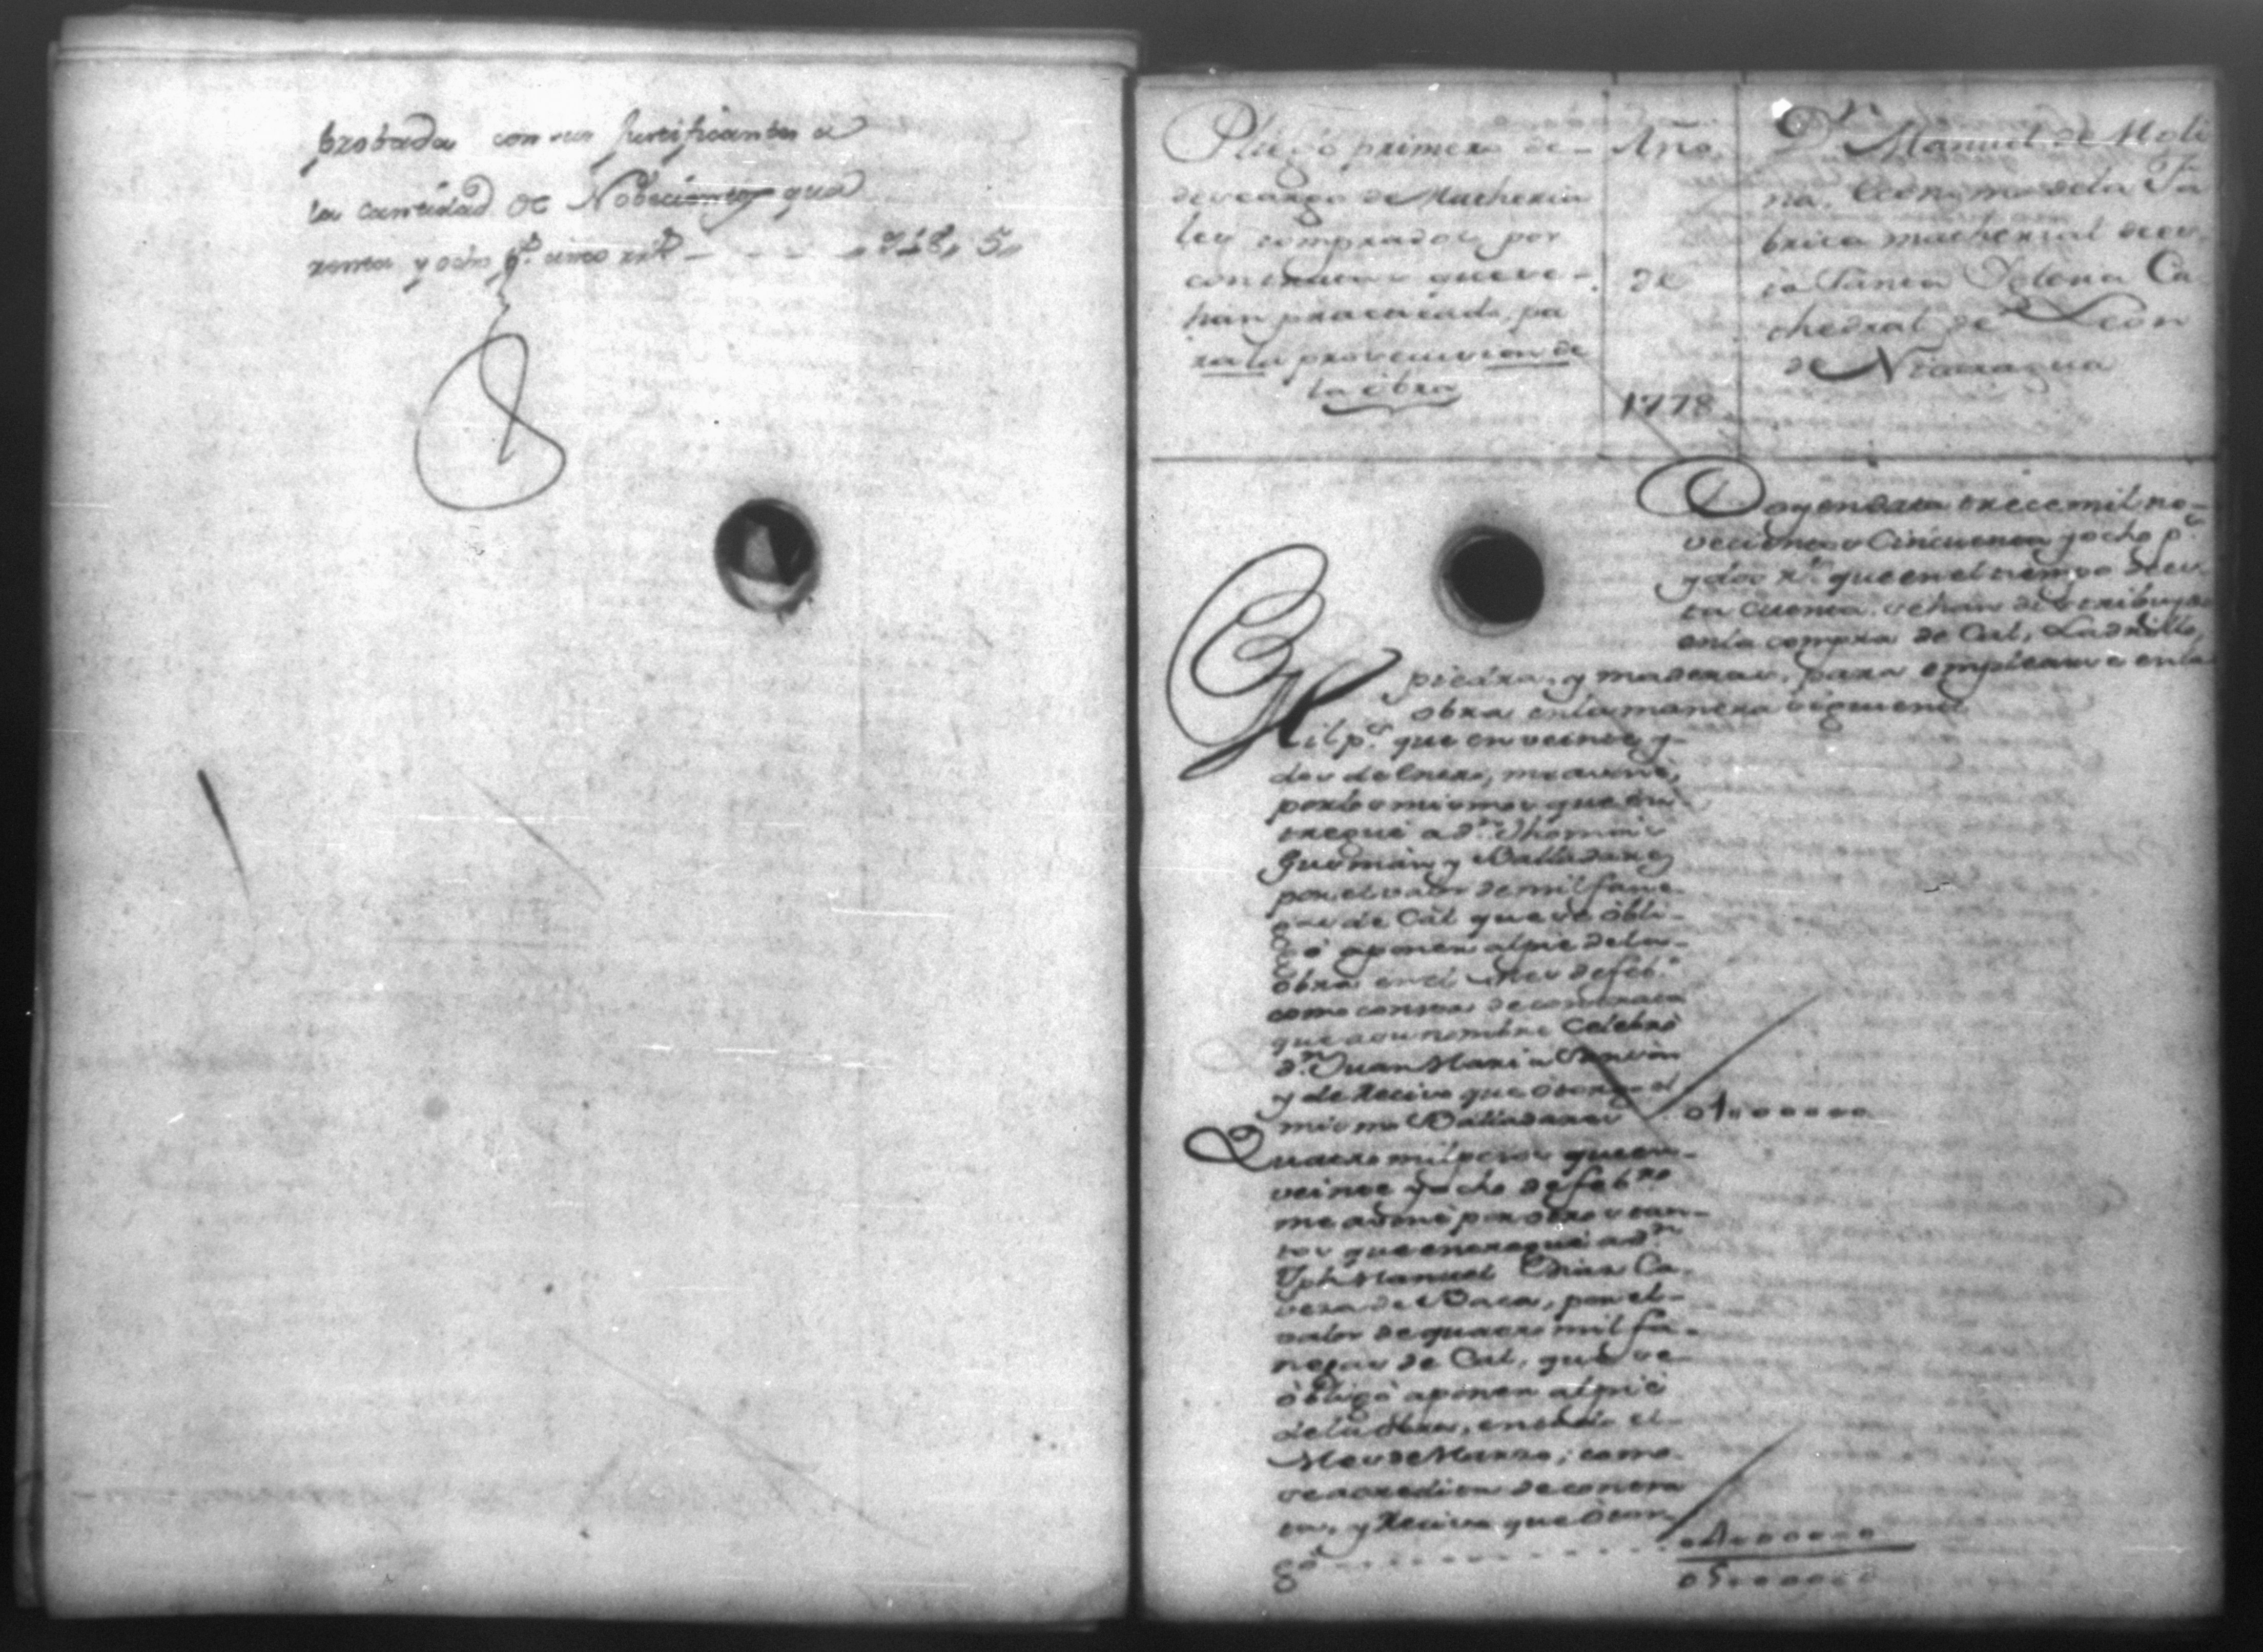 probada con sus Justificantes a
la cantidad de Nobecientos qua
renta y ocho ps. cinco rrs - - - - 948, 5,
Pliego primero de-
descargo de Matheria
les comprados, por
contratas que se-
han practicado pa
ra la provission de
la obra
Año
de
1778
Dn. Manuel de Moli
na, Economo de la Fa
brica matherial de es
ta Santa Yglesia Ca
thedral de Leon
de Nicaragua
Doy en data trece mil no-
vecientos Cincuenta y ocho ps.
y dos rs. que en el tiempo de es-
ta cuenta se han distribuydo
en la compra de Cal, Ladrillo,
piedra, y maderas, para emplearse en la
obra en la manera siguiente
Mil ps. que en veinte y-
dos de Enero, me avone,
por los mismos que en-
tregué a dn. Thomas
Gusman y Balladares
por el valor de mil fane-
gas de Cal que se obli-
gó a poner al pie de la-
obra en el Mes de febo.
como consta de contrata
que a su nombre Celebró
dn. Juan Maria
y de Recivo que otorgo el
mismo Balladares 01,,000,,0
Quatro mil pesos que en-
veinte y ocho de febro
me avoné por otros tan-
tos que entregué a dn
Jph Manuel Dias Ca-
vesa de Baca, por el-
valor de quatro mil fa-
negas de Cal, que se
obligó a poner al pie
de la obra, en todo el-
Mes de Marzo; como-
se acredita de contra
ta, y Recivo que otor-
gó - - - - - 04,,000,,0
05,,000,,0